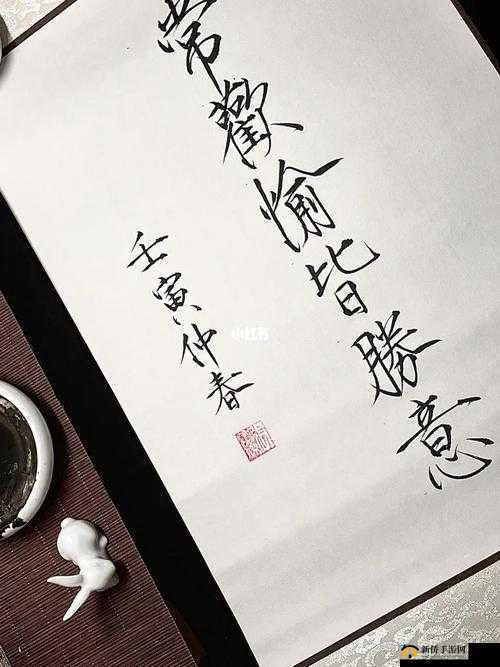 常歡愉皆勝意
壬寅仲春
小红书
新侨手游网